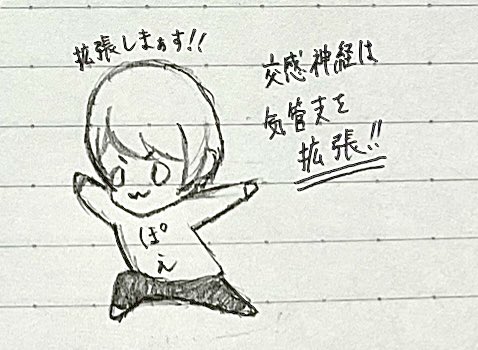 拡張しまぁす!!
交感神経は
気管支を
拡張!!
ぽ
え